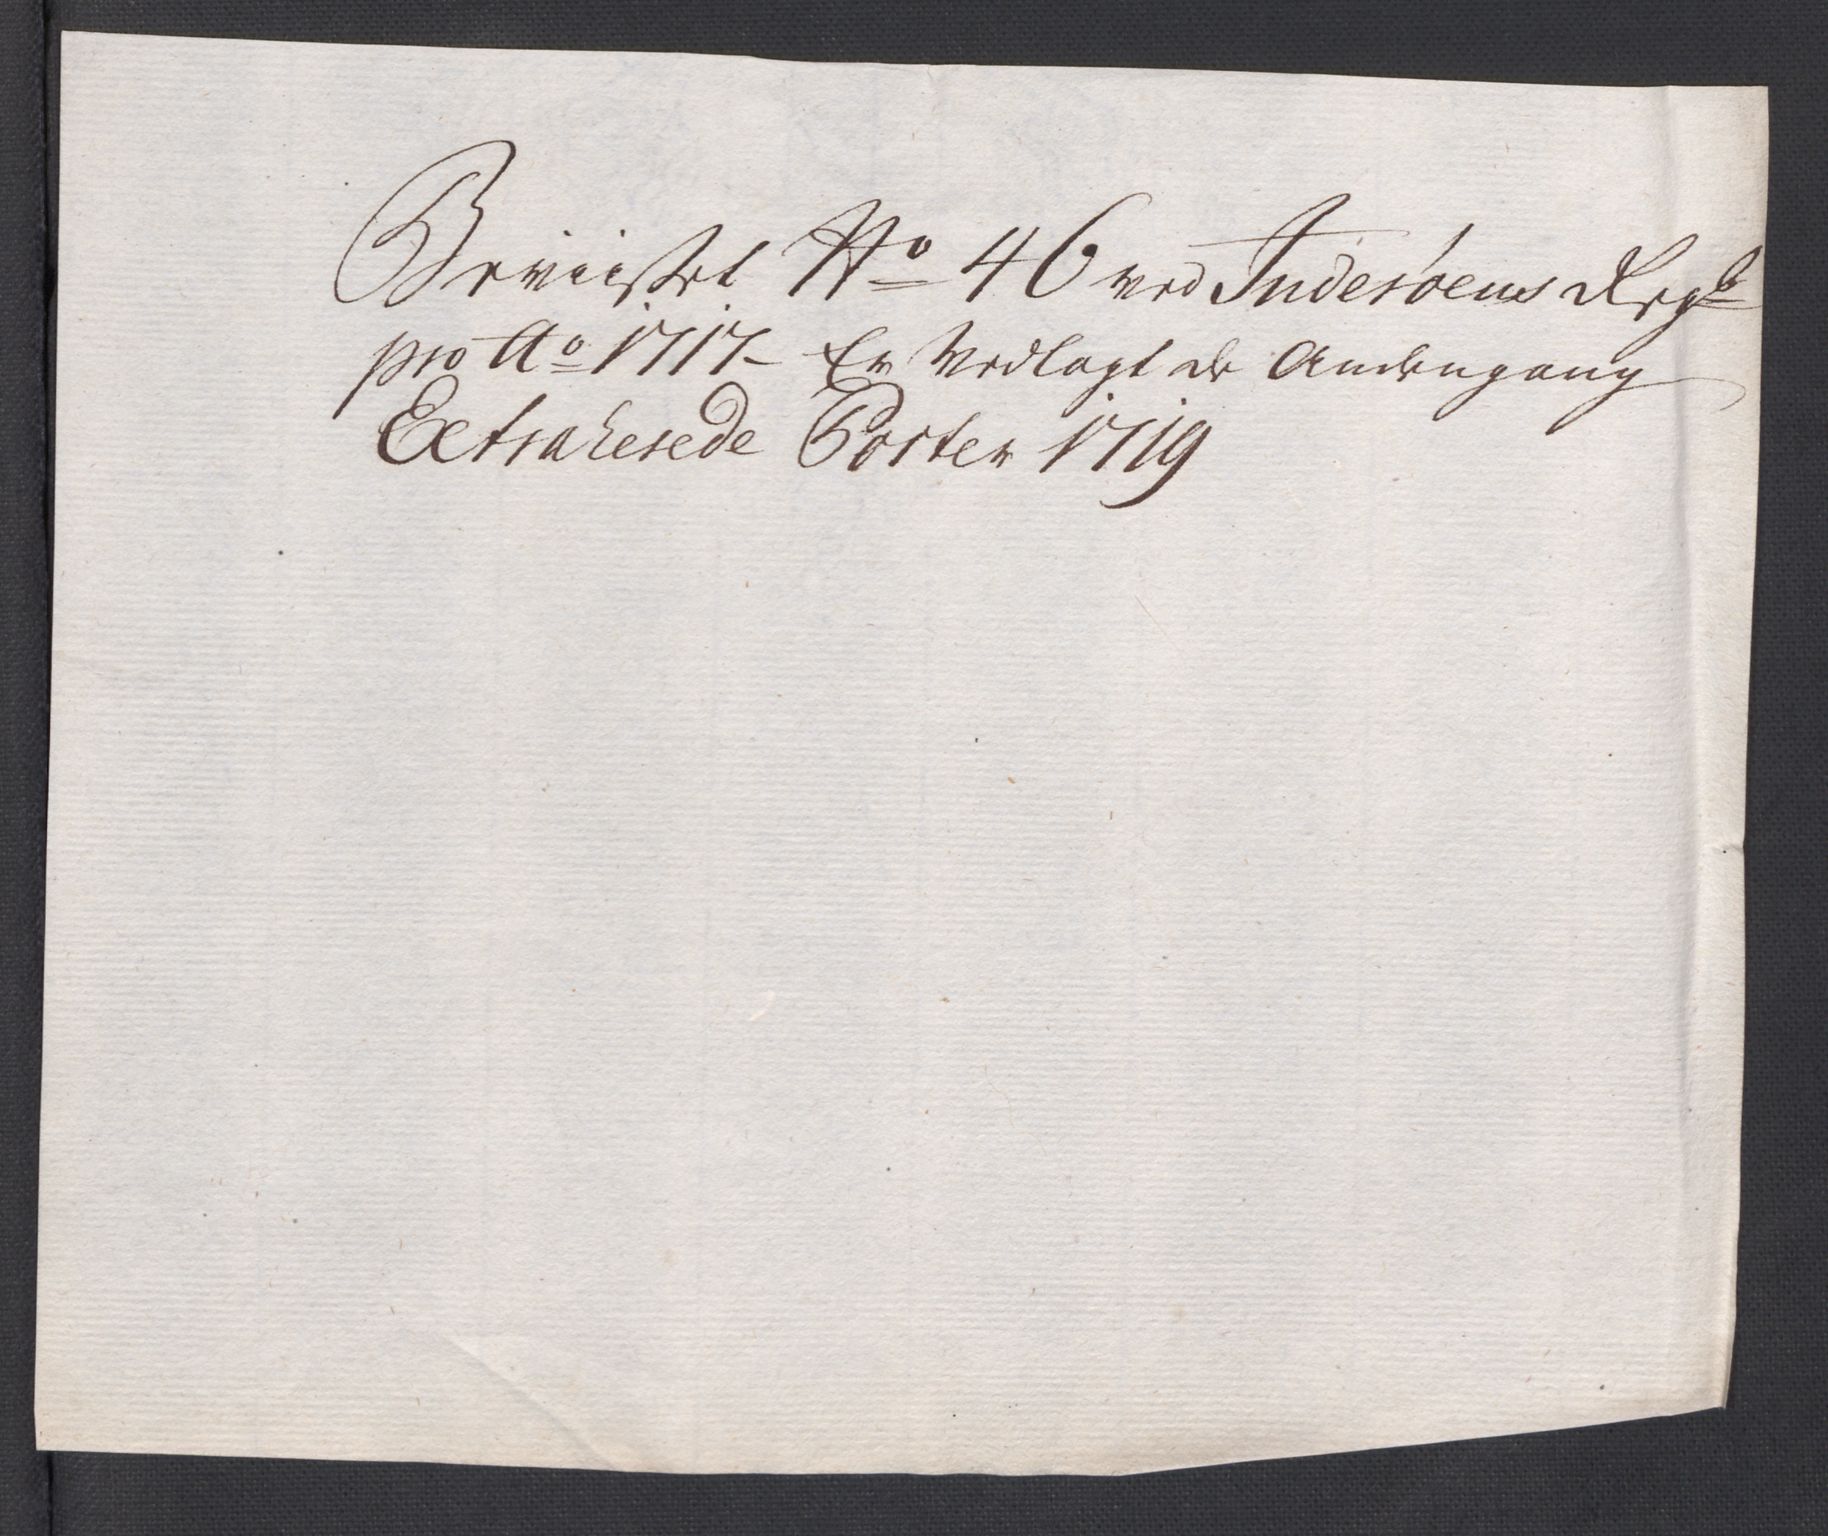 Beviiset No 46 ved Inderøens Regb
pro Ao 1717- Er Vedlagt de Andengang
Extraherede Poster 1719